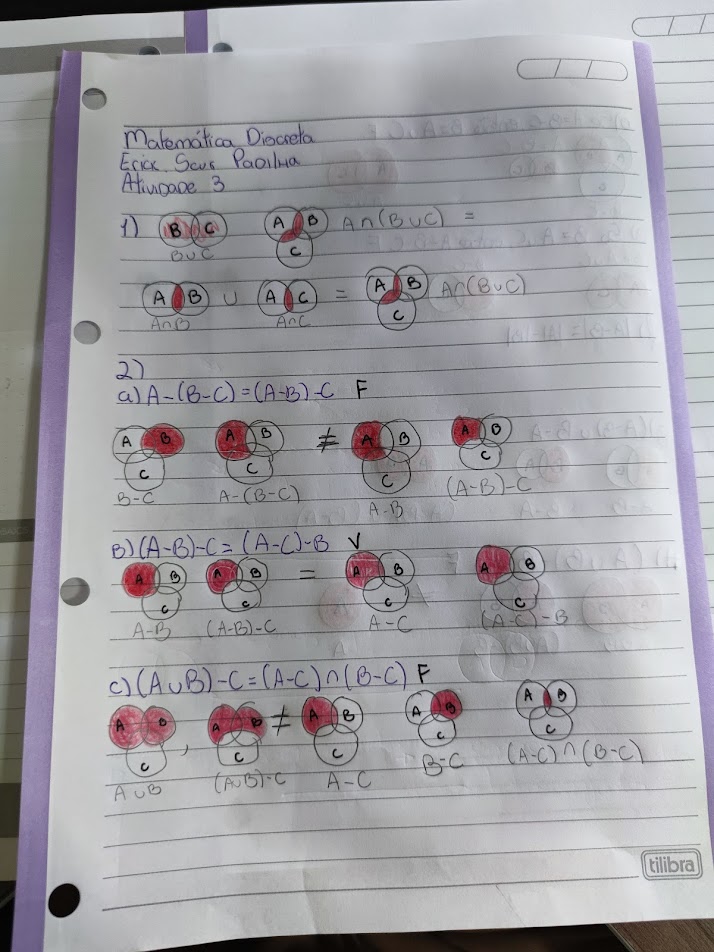 Matemática Discreta
Erick Seus Padilha
Atividade 3
1) B C A B A∩(B∪C) =
B∪C C
A B ∪ A C = A B A∩(B∪C)
A∩B A∩C C
2)
a) A-(B-C)=(A-B)-C F
A B A B ≠ A B A B
C C C C
B-C A-(B-C) A-B (A-B)-C
B) (A-B)-C = (A-C)-B V
A B A B = A B A B
C C C C
A-B (A-B)-C A-C (A-C)-B
c) (A∪B)-C=(A-C)∩(B-C) F
A B , A B ≠ A B A B A B
C C C C C
A∪B (A∪B)-C A-C B-C (A-C)∩(B-C)
tilibra